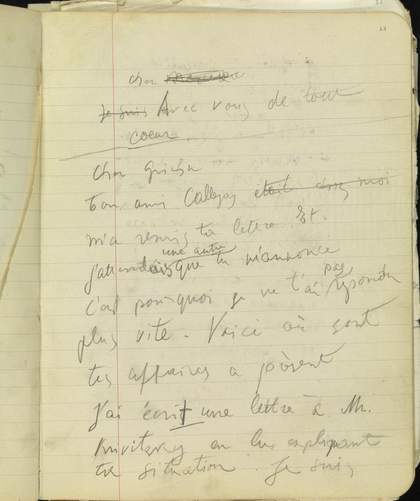 cher
Je suis Avec vous de tout
coeur.
cher
ton ami était chez moi
m'a remis ta lettre. Et.
une autre
j'attendais que tu m'annonce
pas
c'est pourquoi je ne t'ai répondu
plus vite. Voici où sont
tes affaires a présent
J'ai écrit une lettre à Mr.
en lui expliquant
ta situation. Je suis